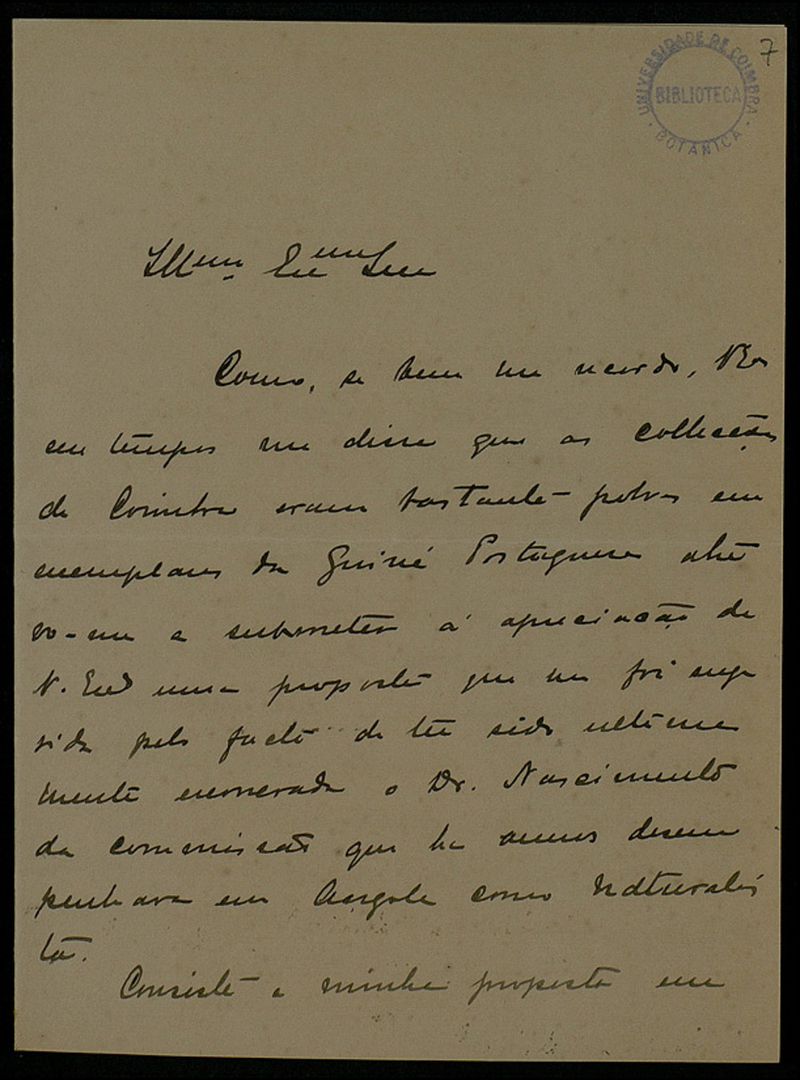 7
UNIVERSIDADE DE COIMBRA
BIBLIOTECA
BOTANICA
Illmo. Exmo Snr
Como, se bem me recordo, VExa
em tempos me disse que as collecções
de Coimbra eram bastante pobres em
exemplares da Guiné Portuguesa atre
vo-me a submeter á apreciação de
V. Exa uma proposta que me foi suge
rida pelo facto de ter sido ultima
mente exonerado o Dr. Nascimento
da commissão que ha annos desem
penhava em Angola como Naturalis
ta.
Consiste a minha proposta em